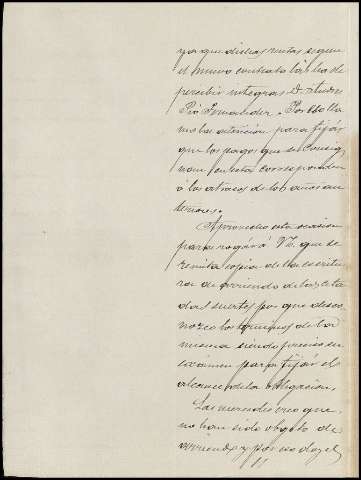 ya que dichas rentas segun
el nuevo contrato las ha de
percibir integras D. Andres
Rio Fernandez. Por ello lla
mo la atención para fijár
que los pagos que se consig
nan en esta corresponden
á los atrasos de los años an
teriores.
Aprovecho esta ocasion
para rogar á V. que se
remita copia de la escritu
ra de arriendo de las cita
das suertes por que desco
nozco los terminos de la
misma siendo preciso su
exámen para fijár el
alcance de la obligacion.
Las mercedes creo que
no han sido objeto de
arriendo y por no